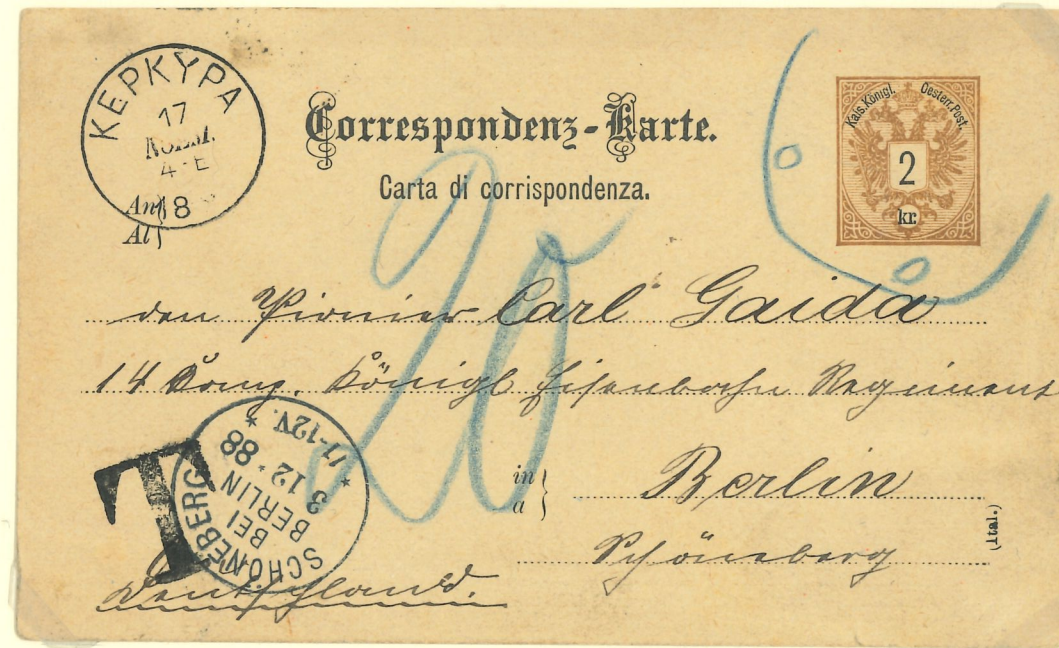 ΚΕΡΚΥΡΑ
17
ΝΟΕΜ.
4-Ε
88
Correspondenz-Karte.
Carta di corrispondenza.
Kais. Königl. Oesterr. Post.
2
kr.
An
Al
20
den Pionier Carl Gaida
14 Komp. Königl Eisenbahn Regiment
in
a
Berlin
Schöneberg
(Ital.)
T
SCHÖNEBERG
BEI
BERLIN
3 12 88
* 11-12V. *
Deutschland.